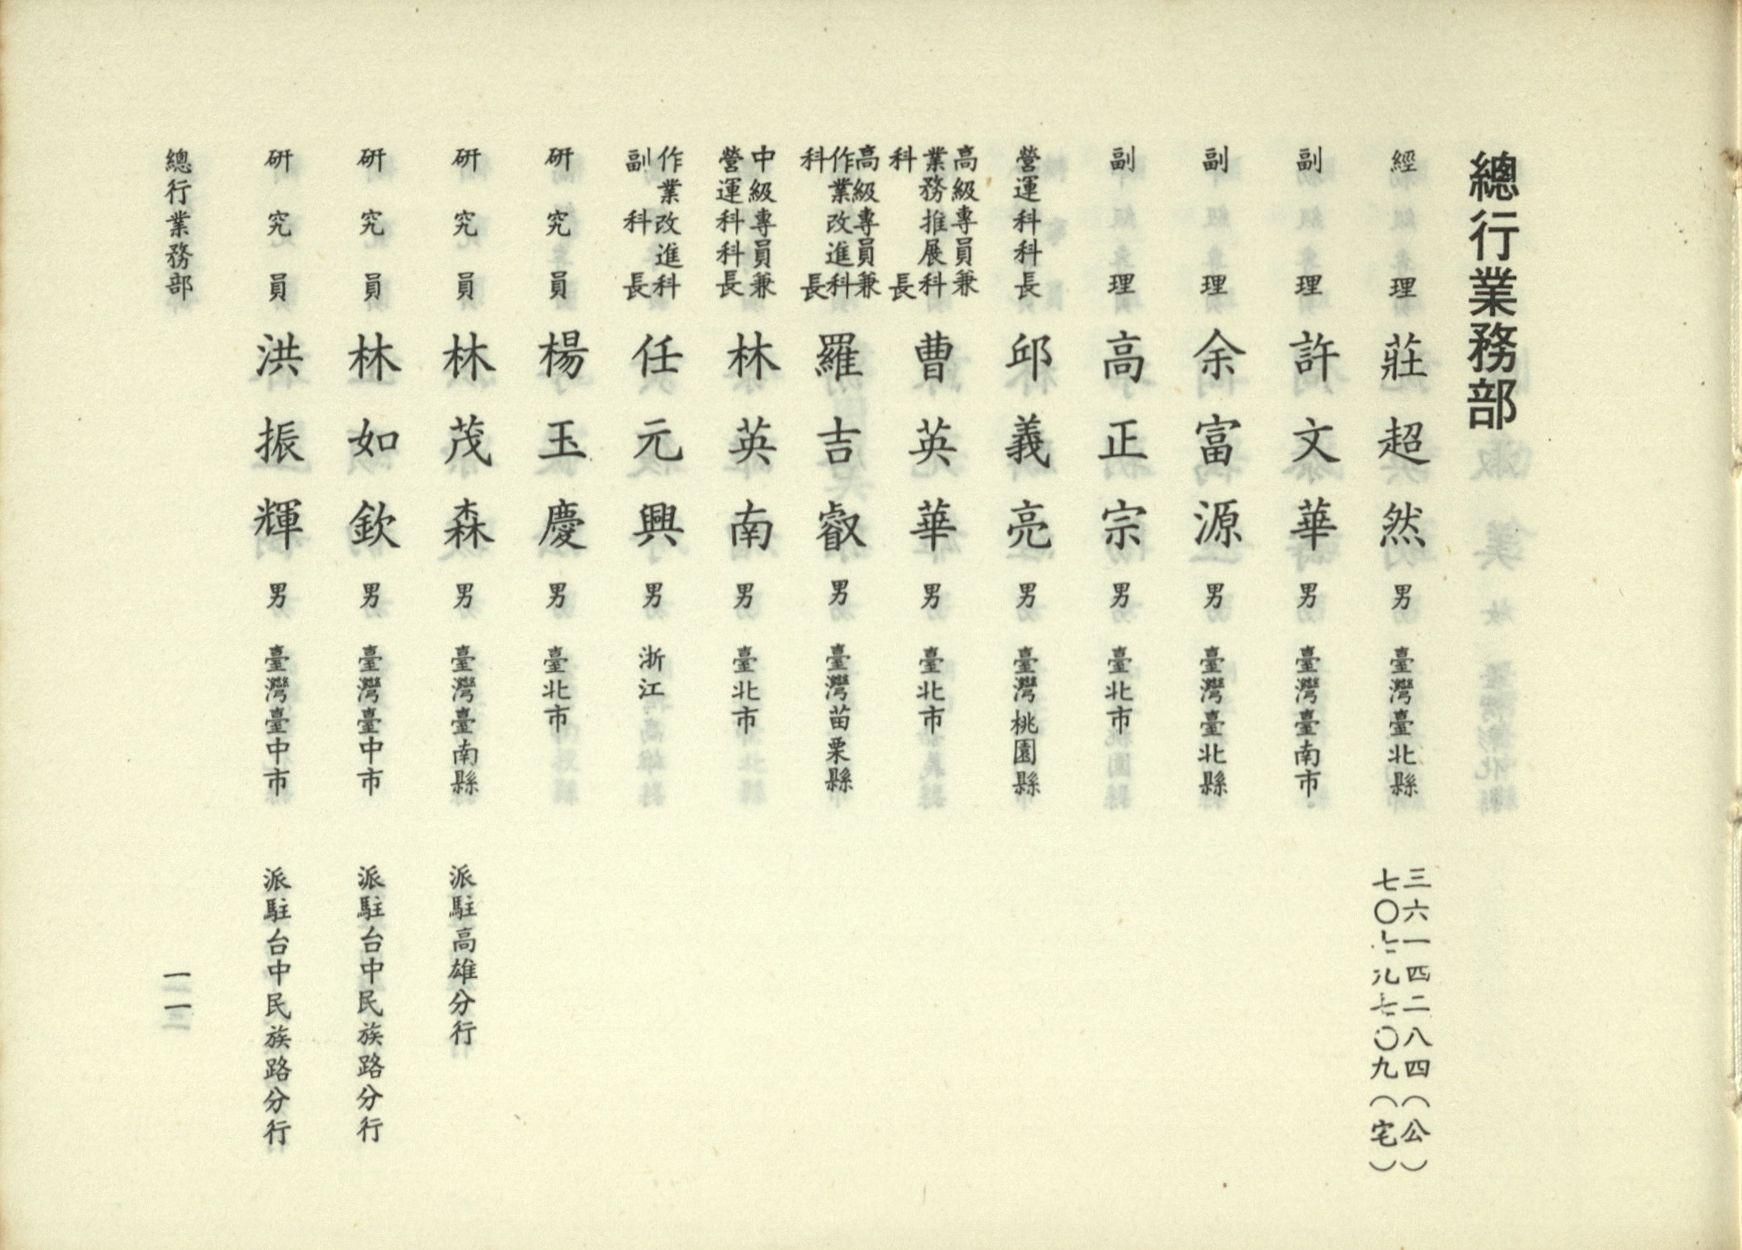 總行業務部
經理 莊超然 男 臺灣臺北縣 三六一四二八四(公) 七〇七九七〇九(宅)
副理 許文華 男 臺灣臺南市
副理 余富源 男 臺灣臺北縣
副理 高正宗 男 臺北市
營運科科長 邱義亮 男 臺灣桃園縣
高級專員兼業務推展科科長 曹英華 男 臺北市
高級專員兼作業改進科科長 羅吉叡 男 臺灣苗栗縣
中級專員兼營運科科長 林英南 男 臺北市
作業改進科副科長 任元興 男 浙江
研究員 楊玉慶 男 臺北市
研究員 林茂森 男 臺灣臺南縣 派駐高雄分行
研究員 林如欽 男 臺灣臺中市 派駐台中民族路分行
研究員 洪振輝 男 臺灣臺中市 派駐台中民族路分行
總行業務部
一一